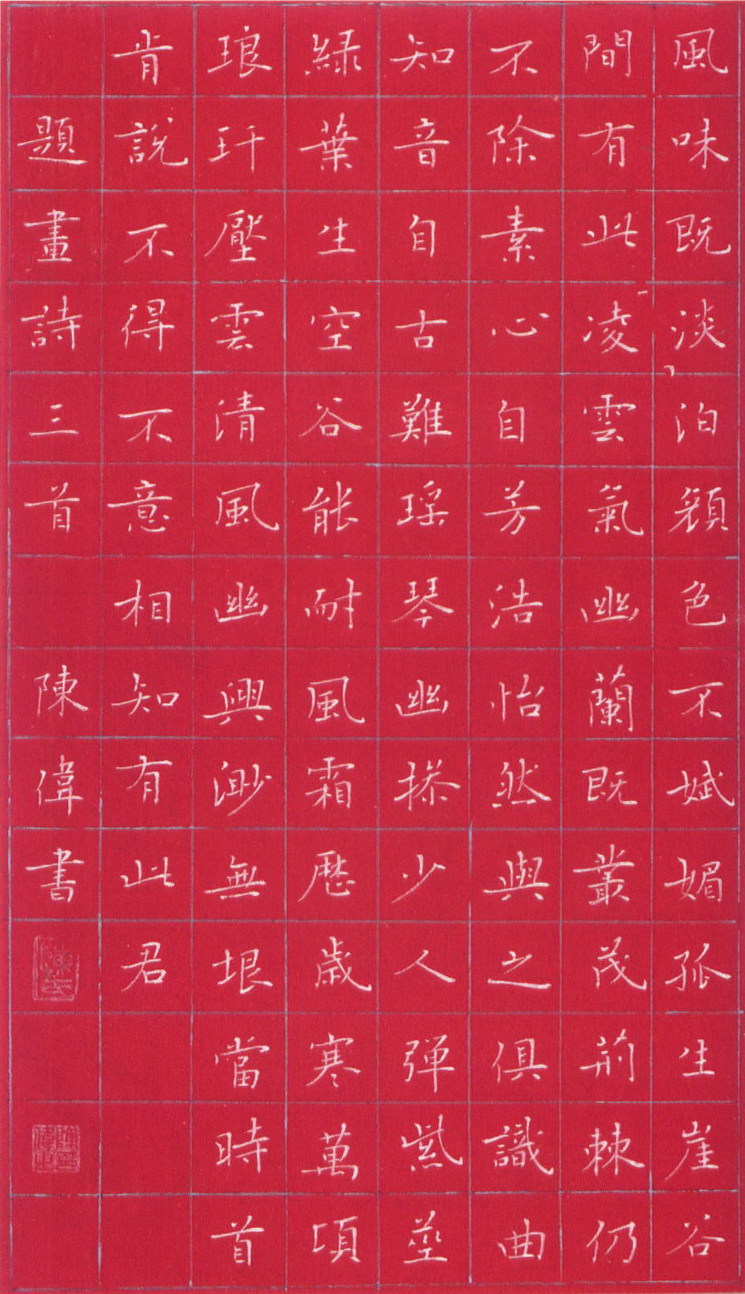 風味既淡泊顏色不斌媚孤生崖谷
間有此凌雲氣幽蘭既叢茂荊棘仍
不除素心自芳浩怡然與之俱識曲
知音自古難瑶琴幽操少人彈紫莖
綠葉生空谷能耐風霜歷歲寒萬頃
琅玕壓雲清風幽興渺無垠當時首
肯說不得不意相知有此君
題畫詩三首 陳偉書